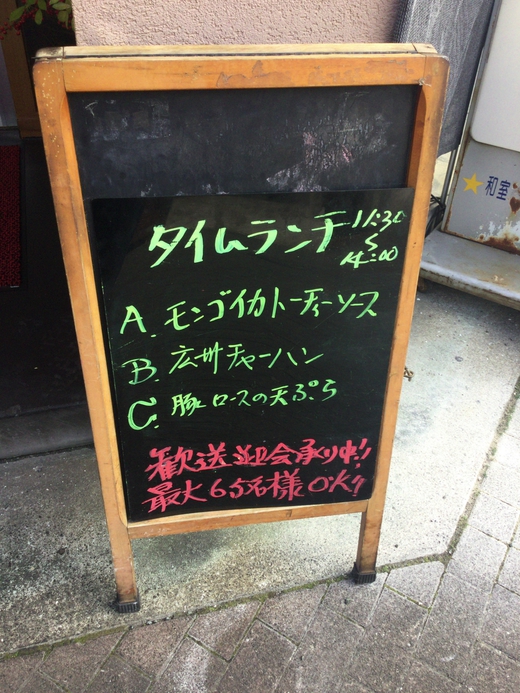 タイムランチ 11:30
〜
14:00
A. モンゴイカトーチーソース
B. 広州チャーハン
C. 豚ロースの天ぷら
歓送迎会承り中!!
最大65名様OK!!
和室